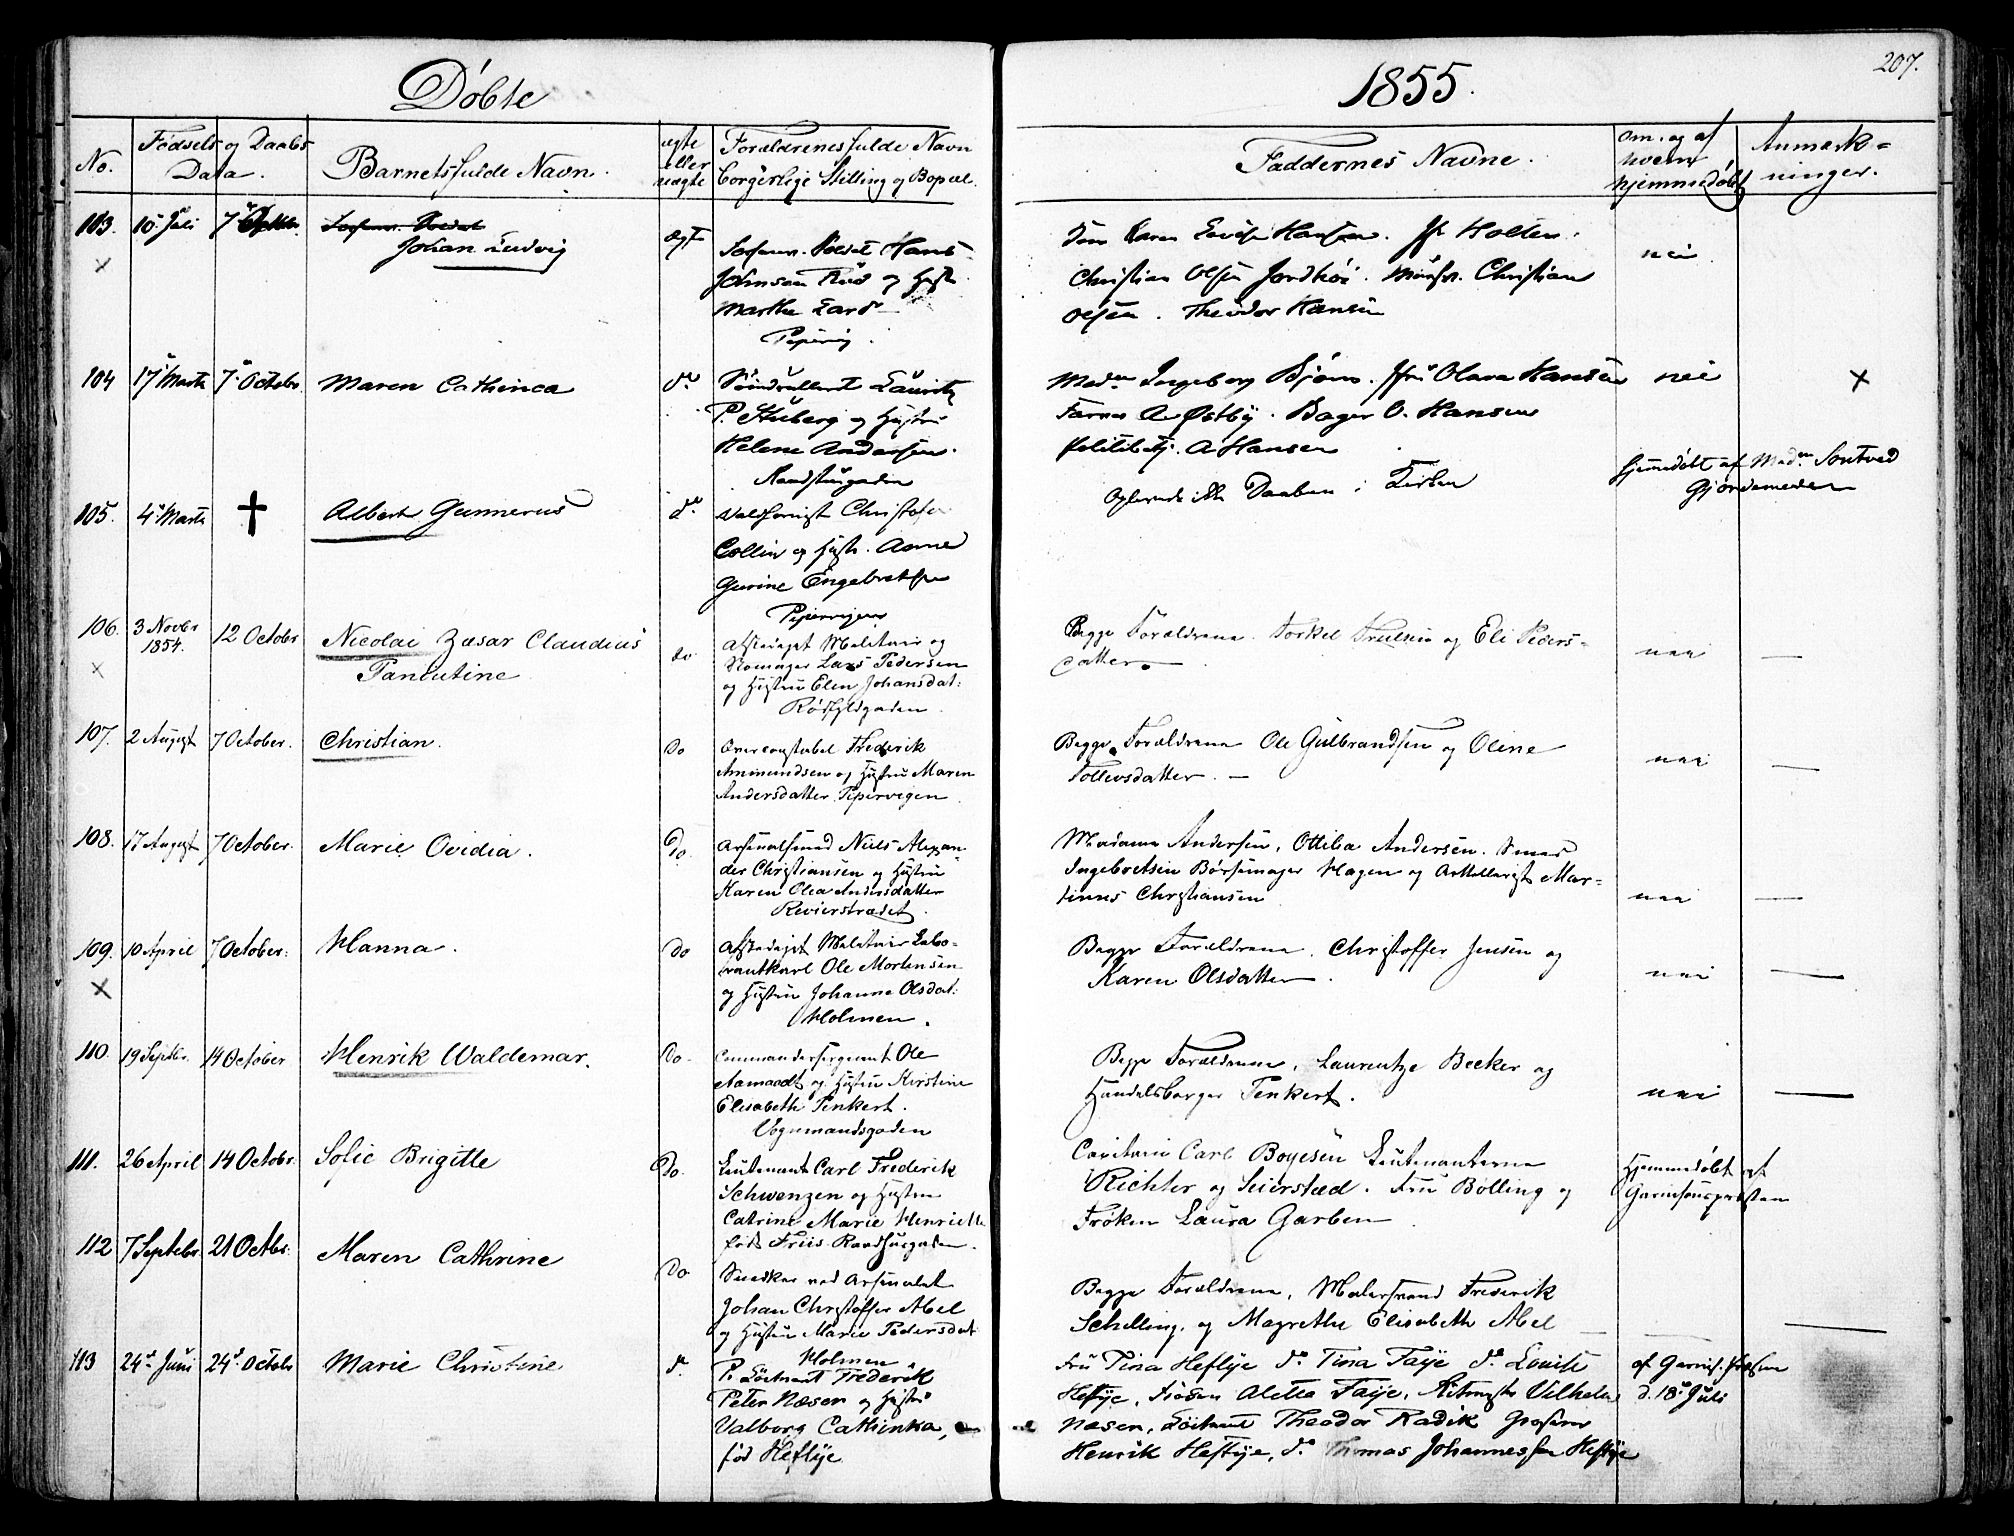 Döbte
1855.
207.
No.
Födsels og Daabs
Data.
Barnets fulde Navn.
ægte
eller
uægte
Forældrenes fulde Navn
borgerlige Stilling og Bopæl.
Faddernes Navne.
om, og af
hvem
hjemmedöbt
Anmærk=
ninger.
103. 10 Juli 7
Johan Ludvig
ægt
Hans
Johnsen Ruud og Hust
Marthe Lars
Pipervig.
Karen Hansen. Holter.
Christian Olsen Christian
Olsen. Theodor Hansen
nei
104 17 Marts 7 October Maren Cathinca do
Lauritz
P. Stuberg og Hustru
Helene Andersen.
Raadstugaden
Madm Ingeborg Björn. Jfru Olava Hansen
A. Østby. Bager O. Hansen
A Hansen
nei
x
105. 4 Marts † Albert Gunnerus do
Christofer
Collin og Hustr. Anne
Gurine Engebretsen
Pipervigen
Daaben i Kirken
hjemmedöbt af Madm Sontved
Gjordemoder
106. 3 Novbr
1854.
12 Octobr
Nicolai Zæsar Claudius
Tantutine
do
Afskediget Melitair og
Skomager Lars Pedersen
og Hustru Elen Johansdat:
Rödfyldgaden
Begge Forældrene. Torkel Trulsen og Eli Peders=
datter
nei —
107. 2 August 7 October. Christian. do
Overconstabel Frederik
Ammundsen og Hustru Maren
Andersdatter Pipervigen
Begge Forældrene Ole Gulbrandsen og Oline
Tollevsdatter. —
nei —
108. 17 August 7 October. Marie Ovidia. Do.
Arsenalsmed Niels Alexan
der Christiansen og Hustru
Karen Olea Andersdatter
Revierstrædet.
Madame Andersen, Ottilia Andersen. Smed
Ingebretsen Börsemager Hagen og Artillerist Mar=
tinus Christiansen
nei —
109. 10 April 7 October. Hanna. do
Afskediget Melitair Labo=
rantkarl Ole Mortensen
og Hustru Johanne Olsdat:
Holmen.
Begge Forældrene. Christoffer Jensen og
Karen Olsdatter.
nei —
110. 19 Septbr. 14 October Henrik Waldemar. Do.
Commandersergeant Ole
Aamodt og Hustru Kirstine
Elisabeth Tenkert.
Vognmandsgaden
Begge Forældrene, Laurentze Becker og
Handelsborger Tenkert.
nei —
111. 26 April 14 Octobr. Sofie Brigitte Do.
Leutenant Carl Frederik
Schwenzen og Hustru
Catrine Marie Henriette
född Friis. Raadhusgaden.
Capitain Carl Boyesen Leutenanterne
Richter og Seierstæd. Fru Bolling og
Fröken Laura Garben
Hjemmedöbt af
Garnisonspræsten
112 7 Septebr 21 Octbr. Maren Cathrine Do
Snedker ved Arsenalet
Johan Christoffer Abel
og Hustru Marie Pedersdat.
Holmen
Begge Forældrene, Malersvend Frederik
Schilling, og Magrethe Elisabeth Abel
—
113 24 Juni 24 Octobr Marie Christine do
P. Löitnant Frederik
Peter Næser og Hustru
Valborg Cathinka,
föd Heftye
Fru Tina Heftye do Tina Faye do Louise
Heftye, Fröken Aletta Faye, Ritmester Vilhelm
Næsen, Löitnant Theodor Radik Grosserer
Henrik Heftye, do Thomas Johannessen Heftye
af Garnis. Præsten
d. 18 Juli